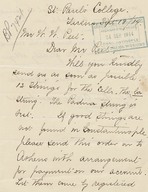 St. Paul's College,
Mr. W. W. Peet:
Dear Mr. Peet:
Will you kindly
send us as soon as possible
12 Strings for the Cello, the
String. The Padua string is
best. If good Strings are
not found in Constantinople
please send this order on to
Athens with arrangement
for payment on our account.
Let them come by registered